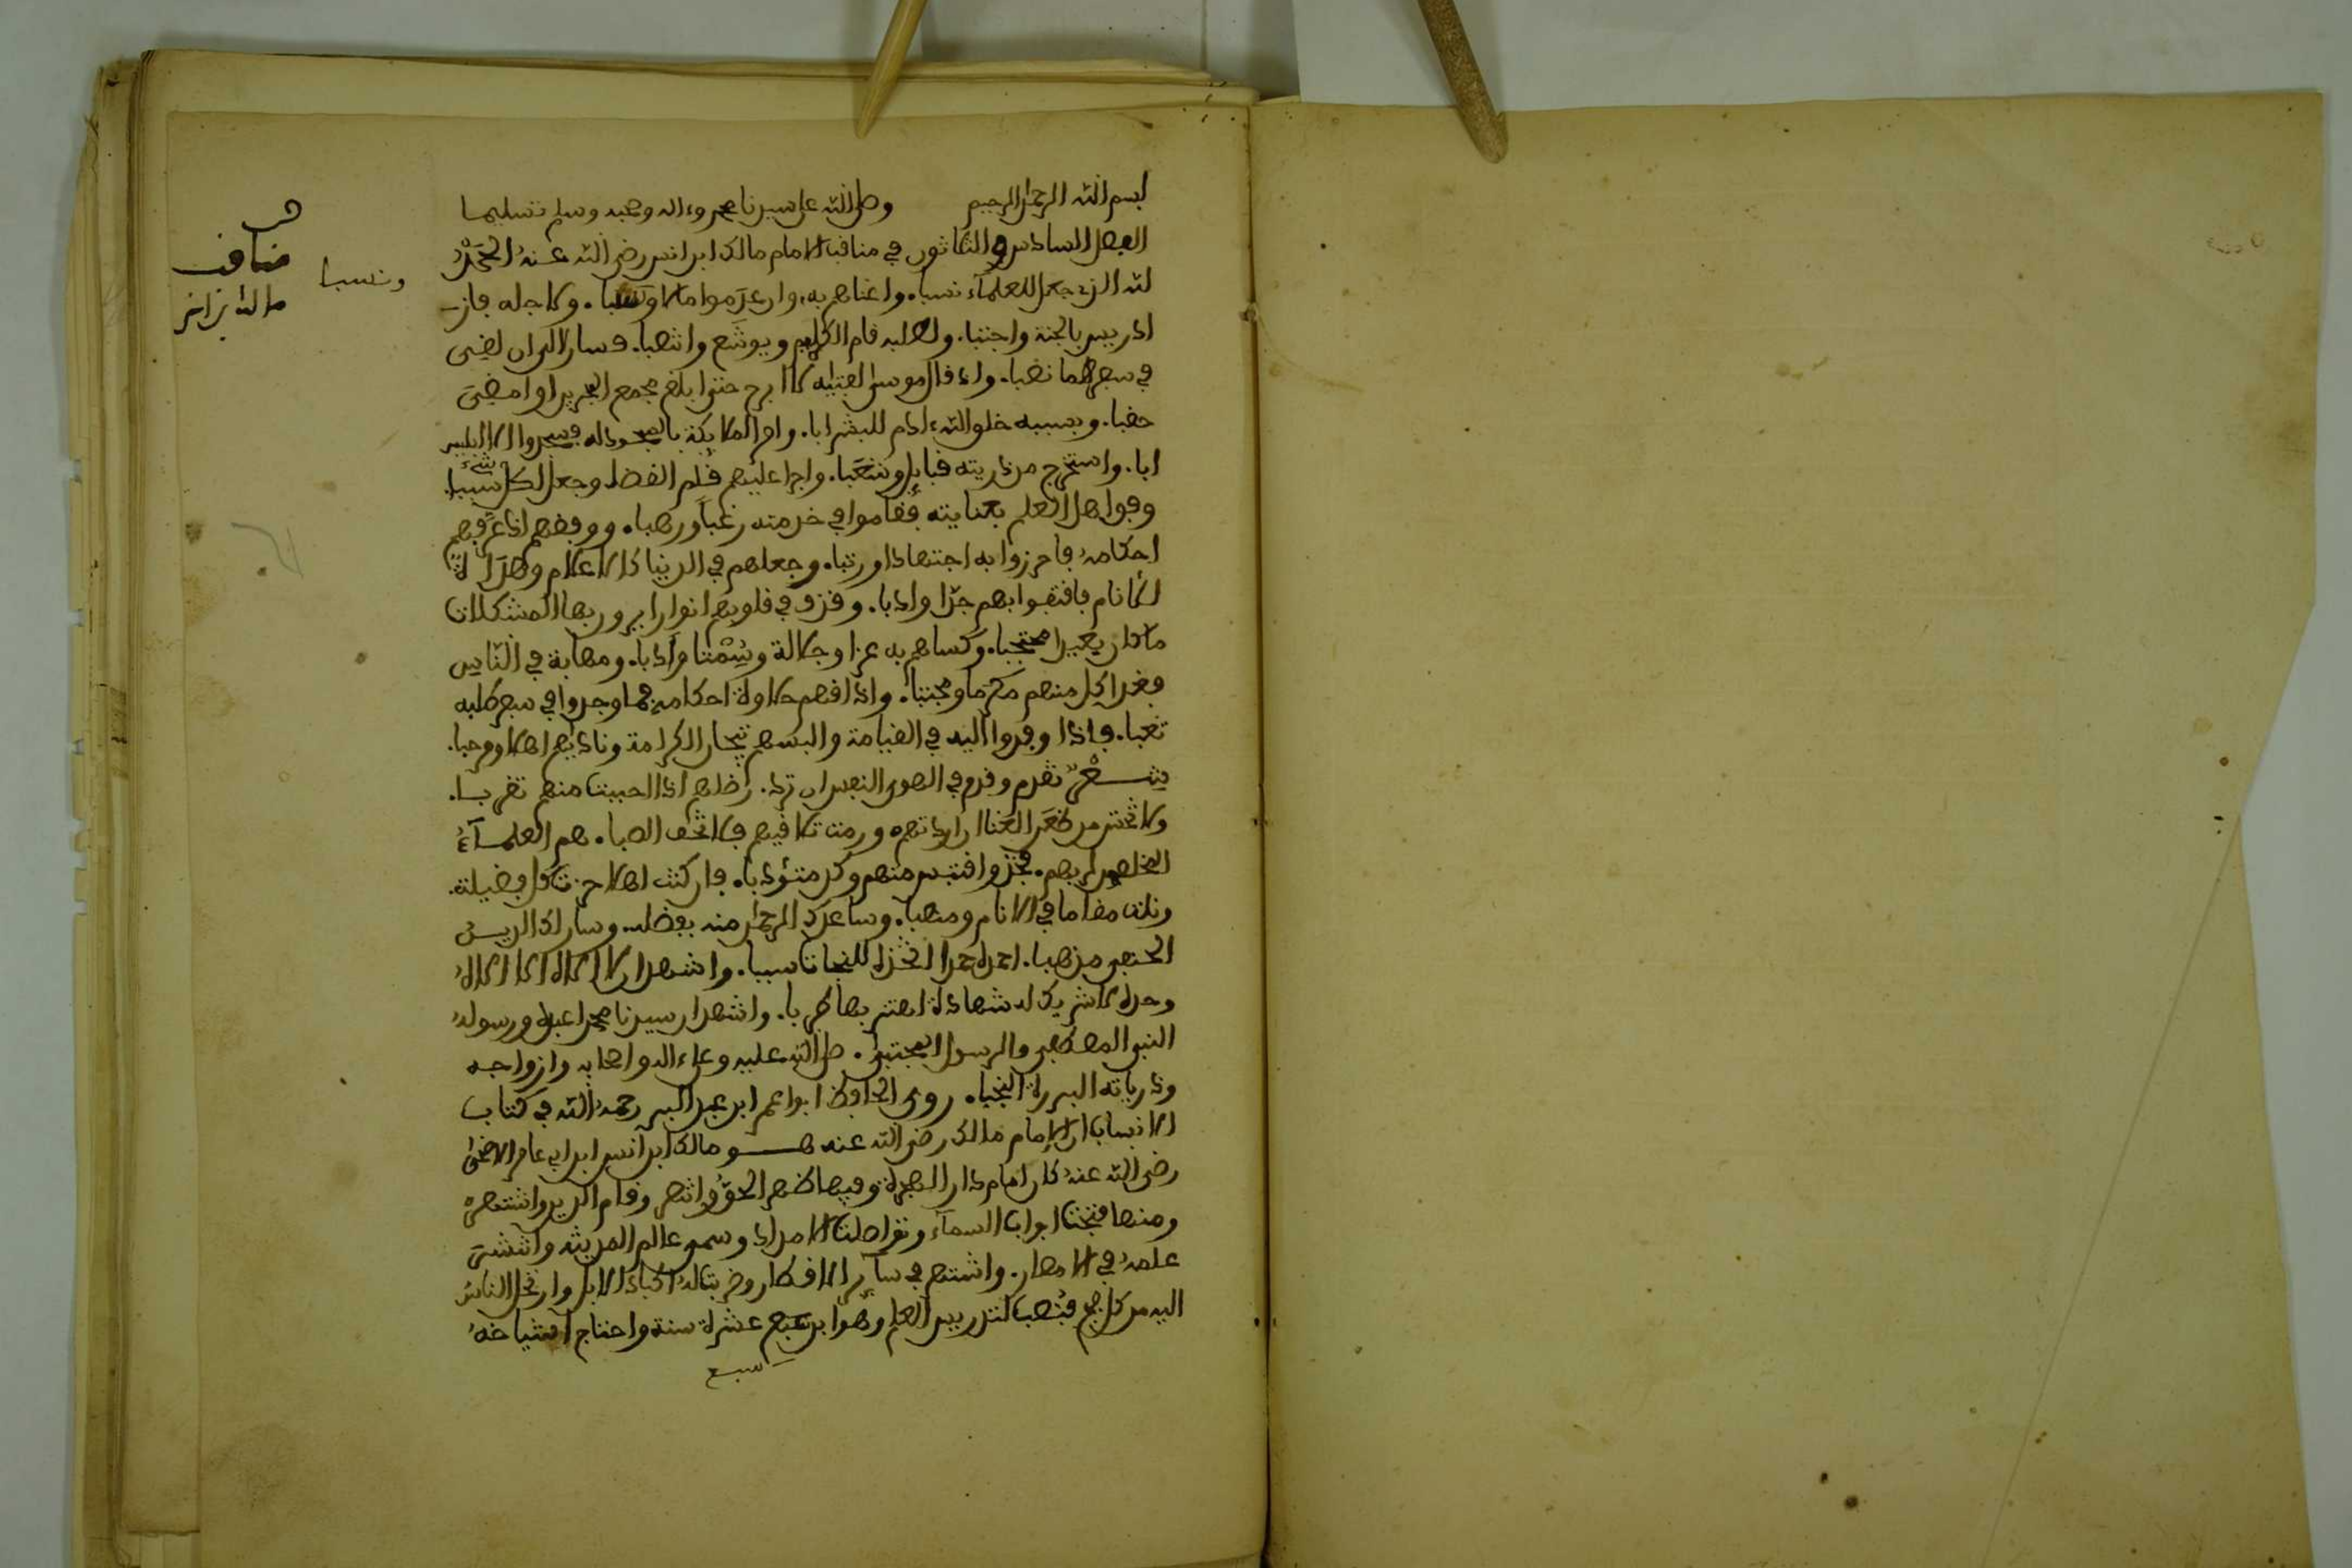 بسم الله الرحمن الرحيم وصلى الله على سيدنا محمد وءاله وصحبه وسلم تسليما
الفصل السادس والثلاثون في مناقب الامام مالك ابن انس رضي الله عنه الحمد
لله الذي جعل العلم للعلماء نسبا. واغناهم به، وان عدموا مالا ونسبا. ولاجله فاز
ادريس بالجنة واجتبا. ولطلبه قام الكليم ويوشع وانتصبا. فسارا الى ان لقيى
في سفرهما نصبا. واذ قال موسى لفتيه لا ابرح حتى ابلغ مجمع البحرين او امضي
حقبا. وبسببه خلق الله ءادم للبشر ابا. وامر الملايكة بالسجود له فسجدوا الا ابليس
ابا. واستخرج من ذريته قبايل وشعبا. واجرا عليهم قلم القضا وجعل لكل شيء سببا.
وقوا اهل العلم بعنايته فقاموا في خدمته رغبا ورهبا. ووفقهم اذ عرفهم
احكامه فاحرزوا به اجتهادا ورتبا. وجعلهم في الدنيا كالاعلام وهداة
للانام فاقتفوا بهم جدا وادبا. وقذف في قلوبهم انوارا يرون بها المشكلات
ما كان بعيدا محتجبا. وكساهم به عزا وجلالة وسمتا وادبا. ومهابة في الناس
فغدا كل منهم مكرما ومجتبا. واذاقهم حلاوة احكامه فما وجدوا في سفر طلبه
تعبا. فاذا وفدوا اليه في القيامة والبسهم تيجان الكرامة وناديهم اهلا ومرحبا.
شعر تقدم وقدم في الهوى النفس ان ترد. رضاهم اذا احببت منهم تقربا.
ولا تخش من طعن القنا ان اردتهم ورمت تلاقيهم فلا تخف الصبا. هم العلماء
المخلصون لربهم. فخذ واقتبس منهم وكن متؤدبا. فان كنت اهلا حزت كل فضيلة.
ونلت مقاما في الانام ومنصبا. وساعدك الرحمن منه بفضله. وسار لك الدين
الحنيفي مذهبا. احمده حمدا اتخذه للنجات سببا. واشهد ان لا اله الا الله
وحده لا شريك له شهادة اهتز بها طربا. واشهد ان سيدنا محمدا عبده ورسوله
النبي المصطفى والرسول المجتبى. صلى الله عليه وعلى ءاله واصحابه وازواجه
وذرياته البررة النجبا. روى الحافظ ابوا عمر ابن عبد البر رحمه الله في كتاب
الانساب ان الامام مالك رضي الله عنه هو مالك ابن انس ابن ابي عامر الاصبحي
رضي الله عنه كان امام دار الهجرة وفيها ظهر الحق وانتصر وقام الدين واشتهر
ومنها فتحت ابواب السماء وتواصلت الامداد وسمي عالم المدينة وانتشر
علمه في الامصار. واشتهر في ساير الاقطار وضربت له اكباد الابل وارتحل الناس
اليه من كل فج فنصب لتدريس العلم وهو ابن سبع عشرة سنة واحتاج اشياخه
سبع
ونسبا
مناقب
مالك بن انس